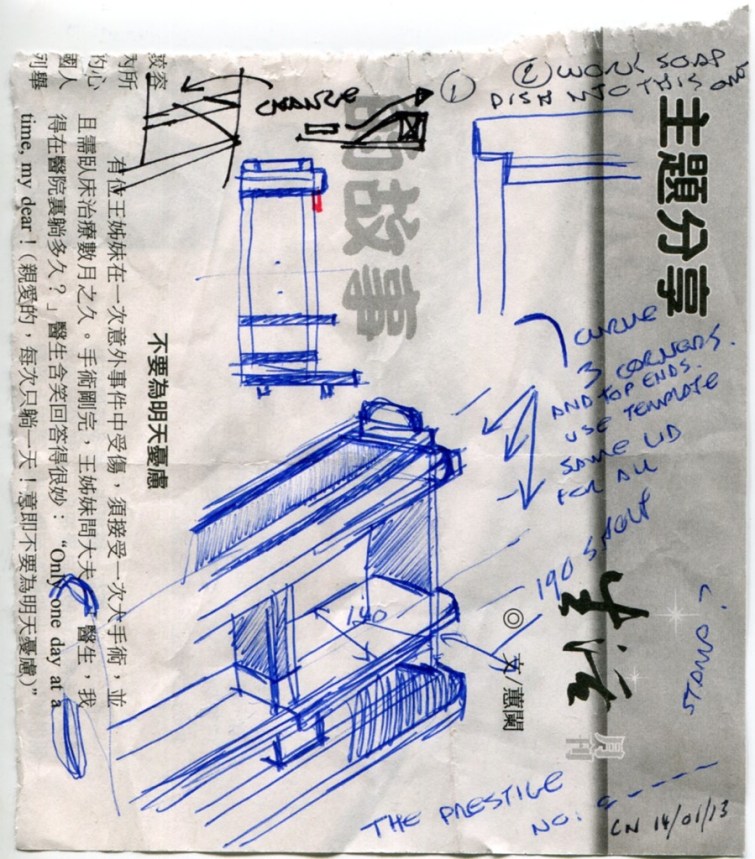 ① ② WORK SOAP
DISH INTO THIS ONE
CHANGE
主題分享
的故事
CURVE
3 CORNERS.
AND TOP ENDS.
USE TEMPLATE
SAME LID
FOR ALL
190 SHOLF
140
STAND?
生活
月刊
◎文/蕙蘭
不要為明天憂慮
有位王姊妹在一次意外事件中受傷，須接受一次大手術，並
且需臥床治療數月之久。手術剛完，王姊妹問大夫：「醫生，我
得在醫院裏躺多久？」醫生含笑回答得很妙：“Only one day at a
time, my dear！（親愛的，每次只躺一天！意即不要為明天憂慮）”
為所
的心
國人
列舉
THE PRESTIGE
NO: 9 -----
CN 14/01/13